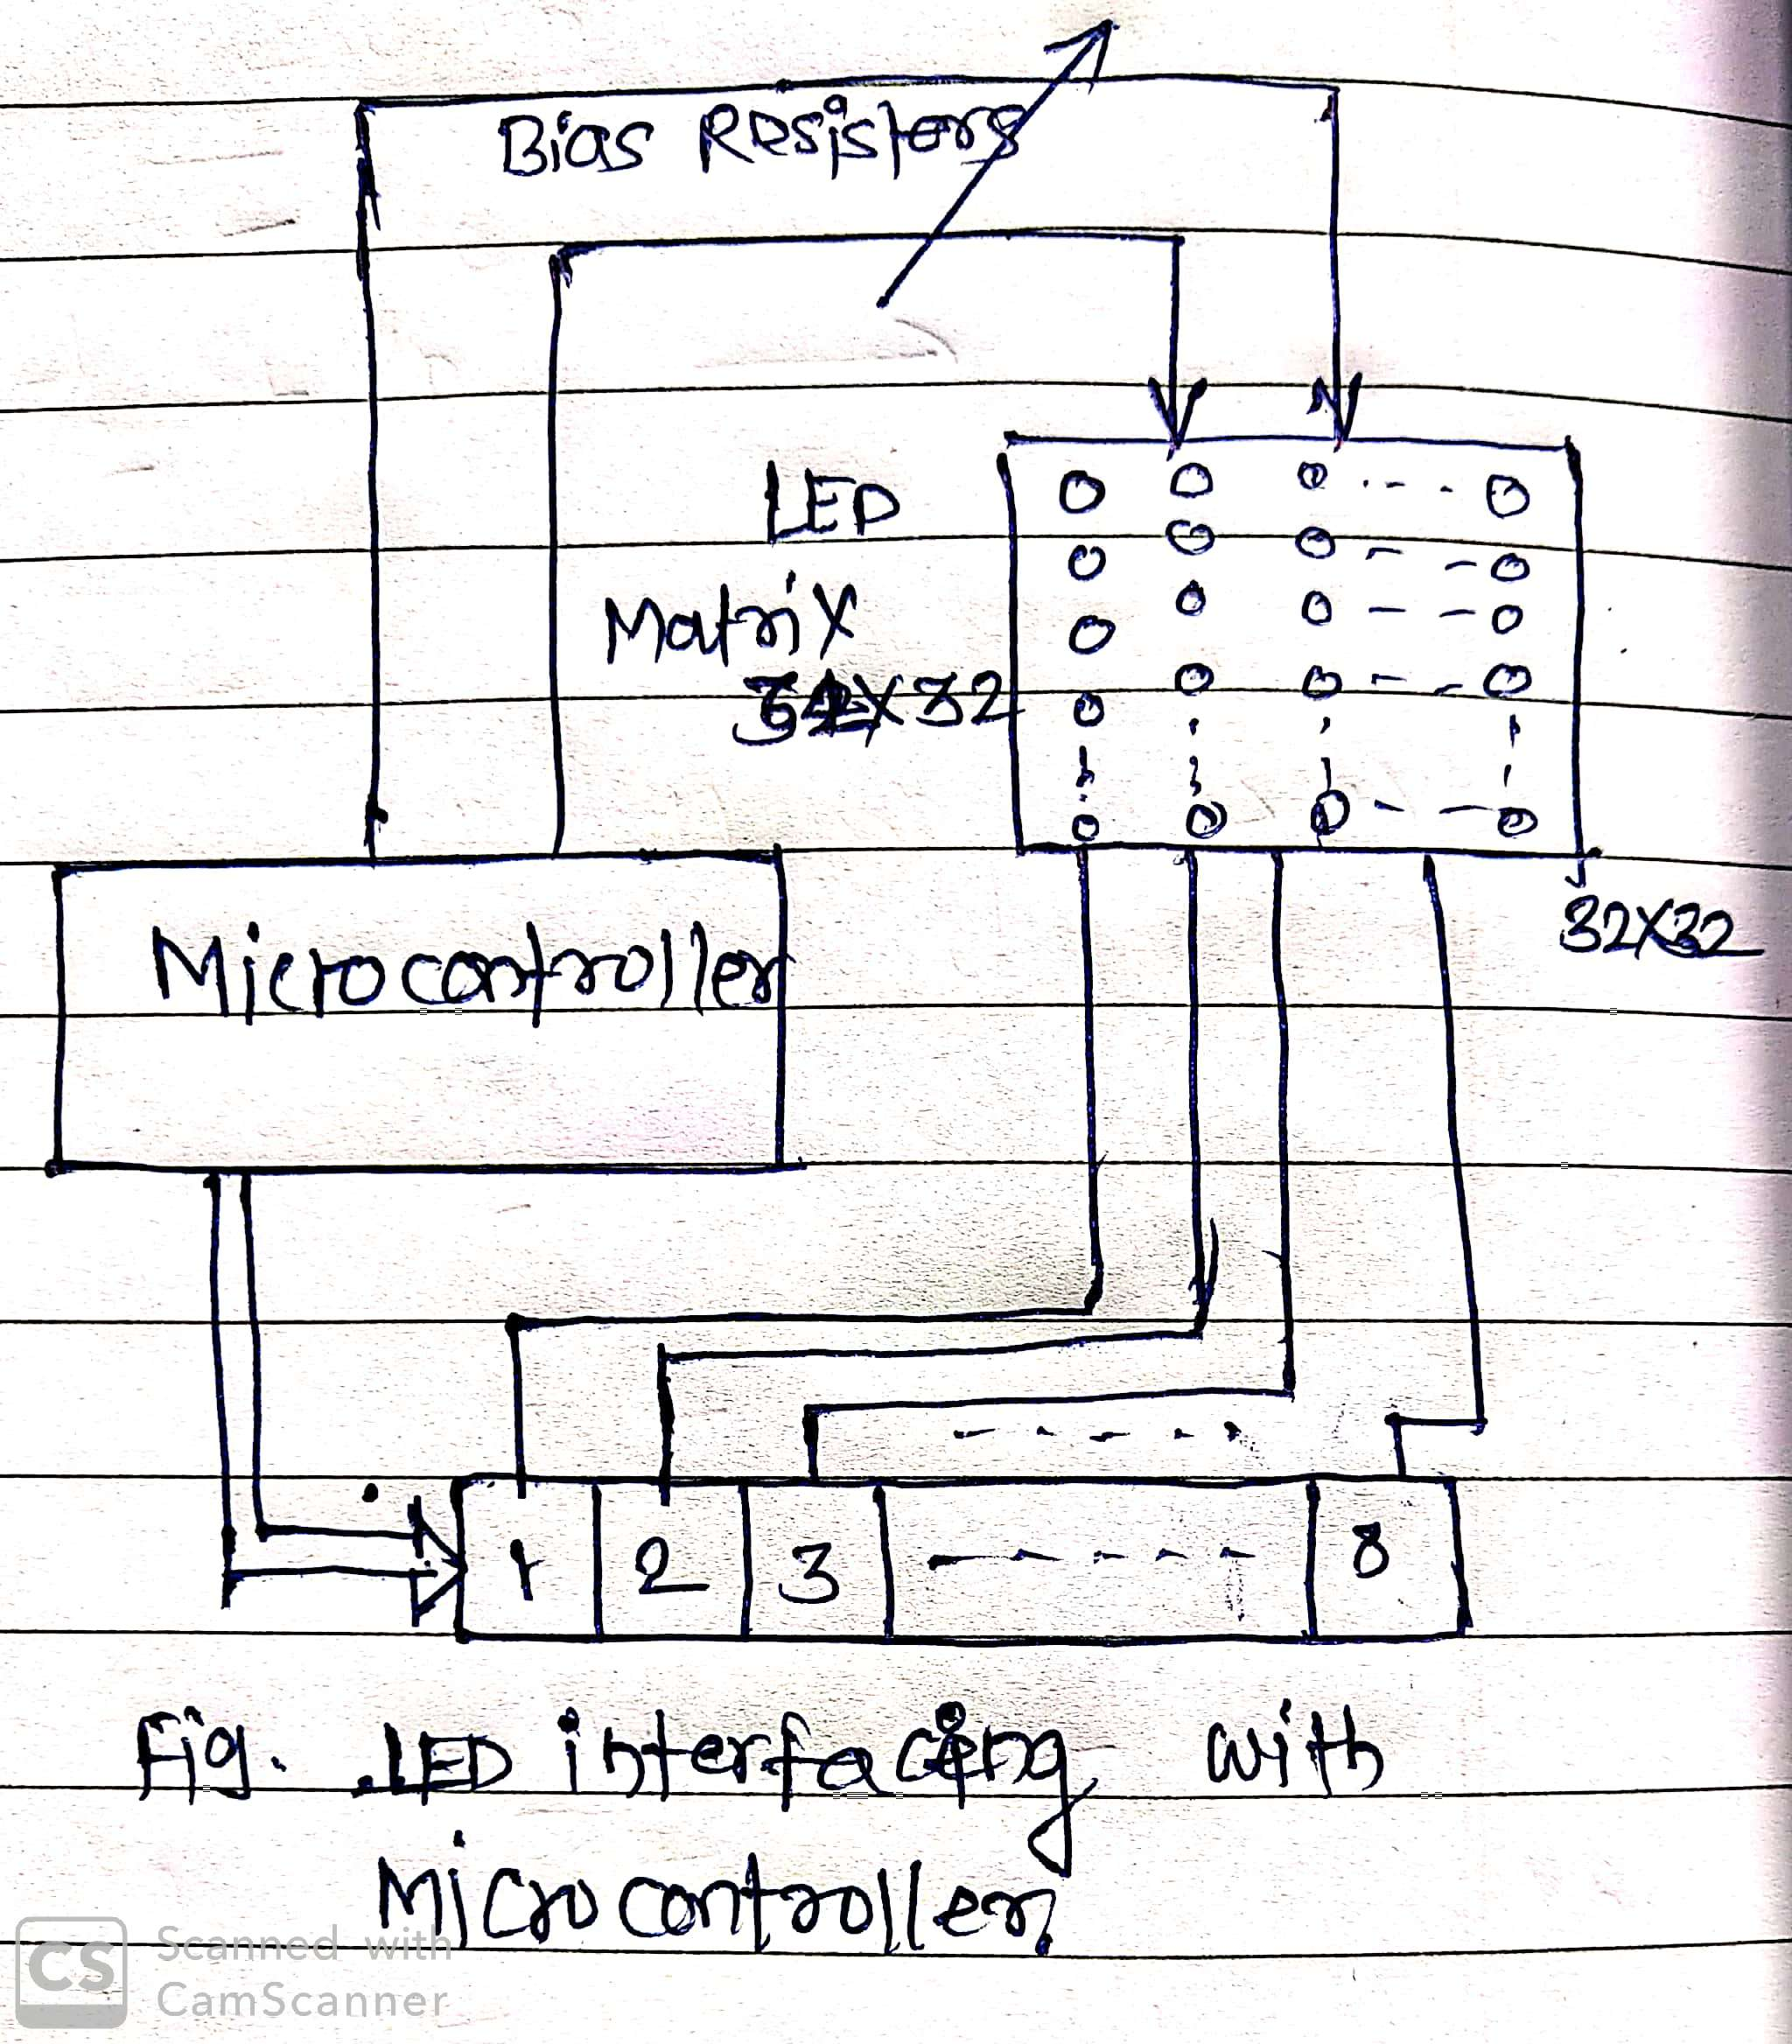 Bias Resistors
LED
Matrix
32X32
32X32
Microcontroller
1 2 3 ----- 8
Fig. LED interfacing with
Microcontroller
CS Scanned with
CamScanner